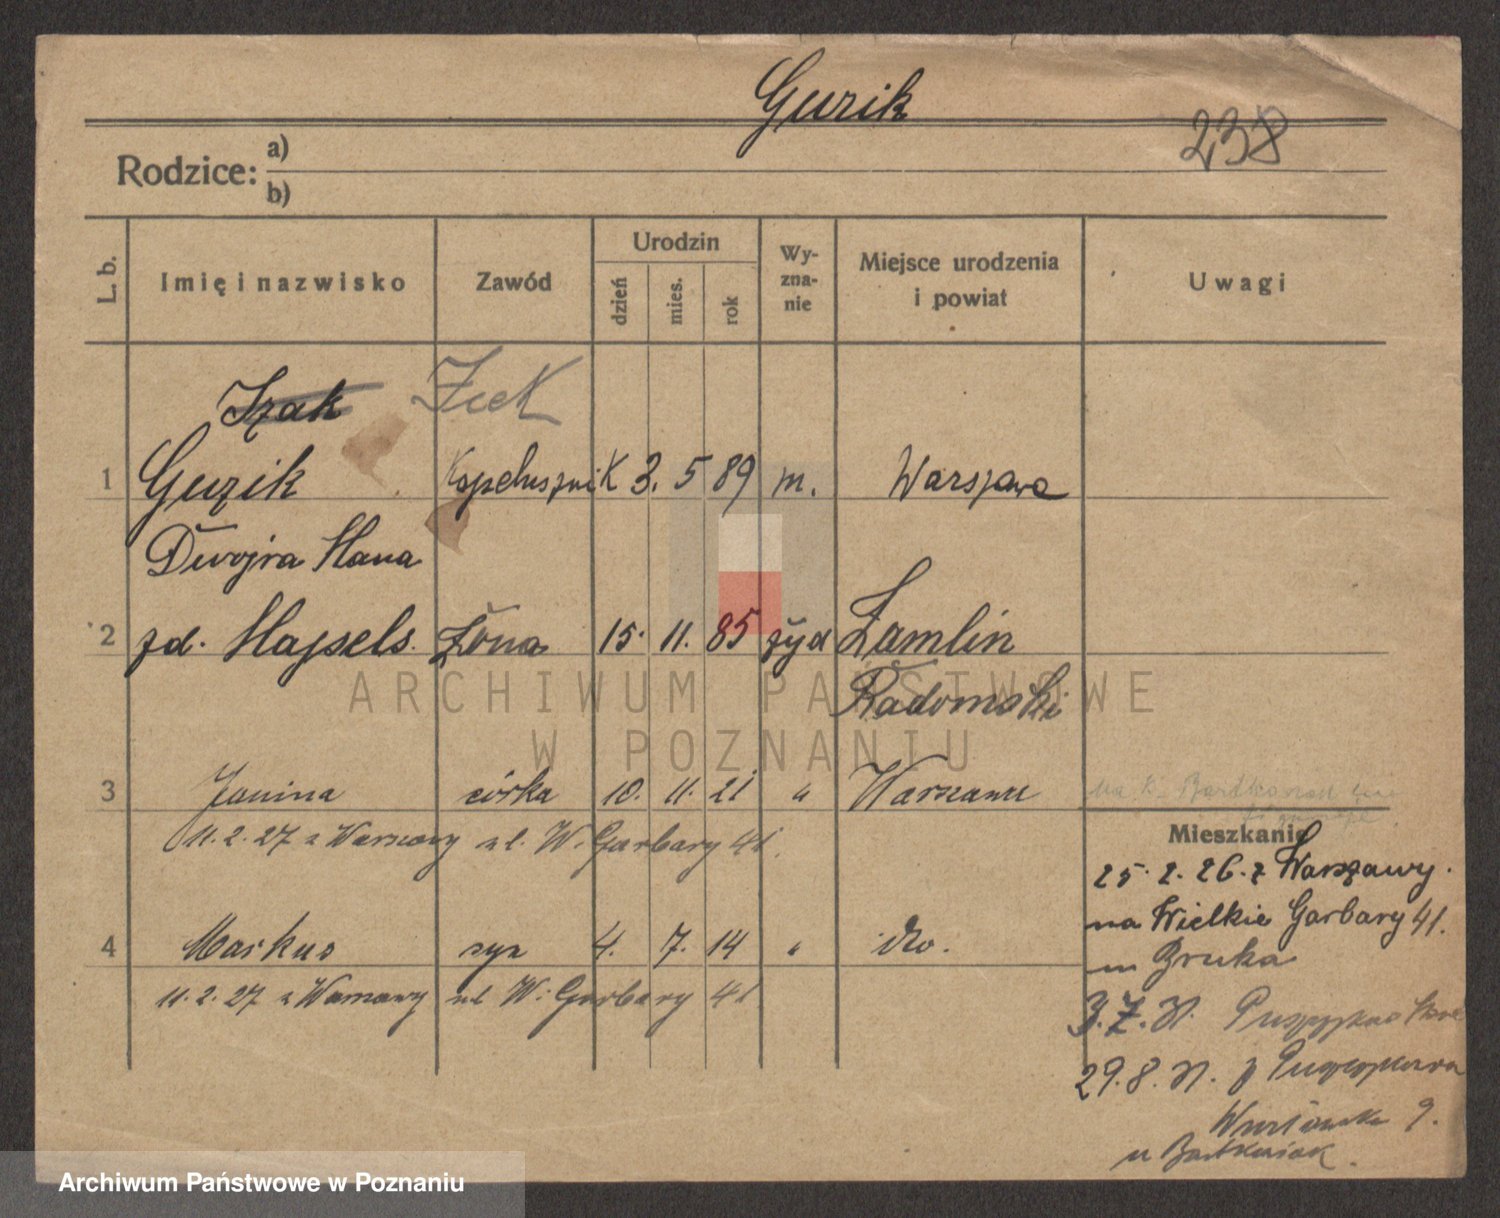 Gurik
238
Rodzice: a)
b)
L. b. Imię i nazwisko Zawód Urodzin dzień mies. rok Wyznanie Miejsce urodzenia i powiat Uwagi
Izak Icek
1 Guzik Kapelusznik 3. 5 89 m. Warszawa
Dwojra Hana
2 zd. Hajsels. Żona 15. 11. 85 żyd Zamlin
Radomski
ARCHIWUM PAŃSTWOWE
W POZNANIU
3 Janina córka 10. 11. 21 " Warszawa
11. 2. 27 z Warszawy ul. W. Garbary 41.
4 Markus syn 4. 7. 14 " dto.
11. 2. 27 z Warszawy ul W. Garbary 41
Mieszkanie
25. 2. 26. z Warszawy.
na Wielkie Garbary 41.
m Bruka
29. 8. 31. z
9.
u Bartkowiak.
Archiwum Państwowe w Poznaniu